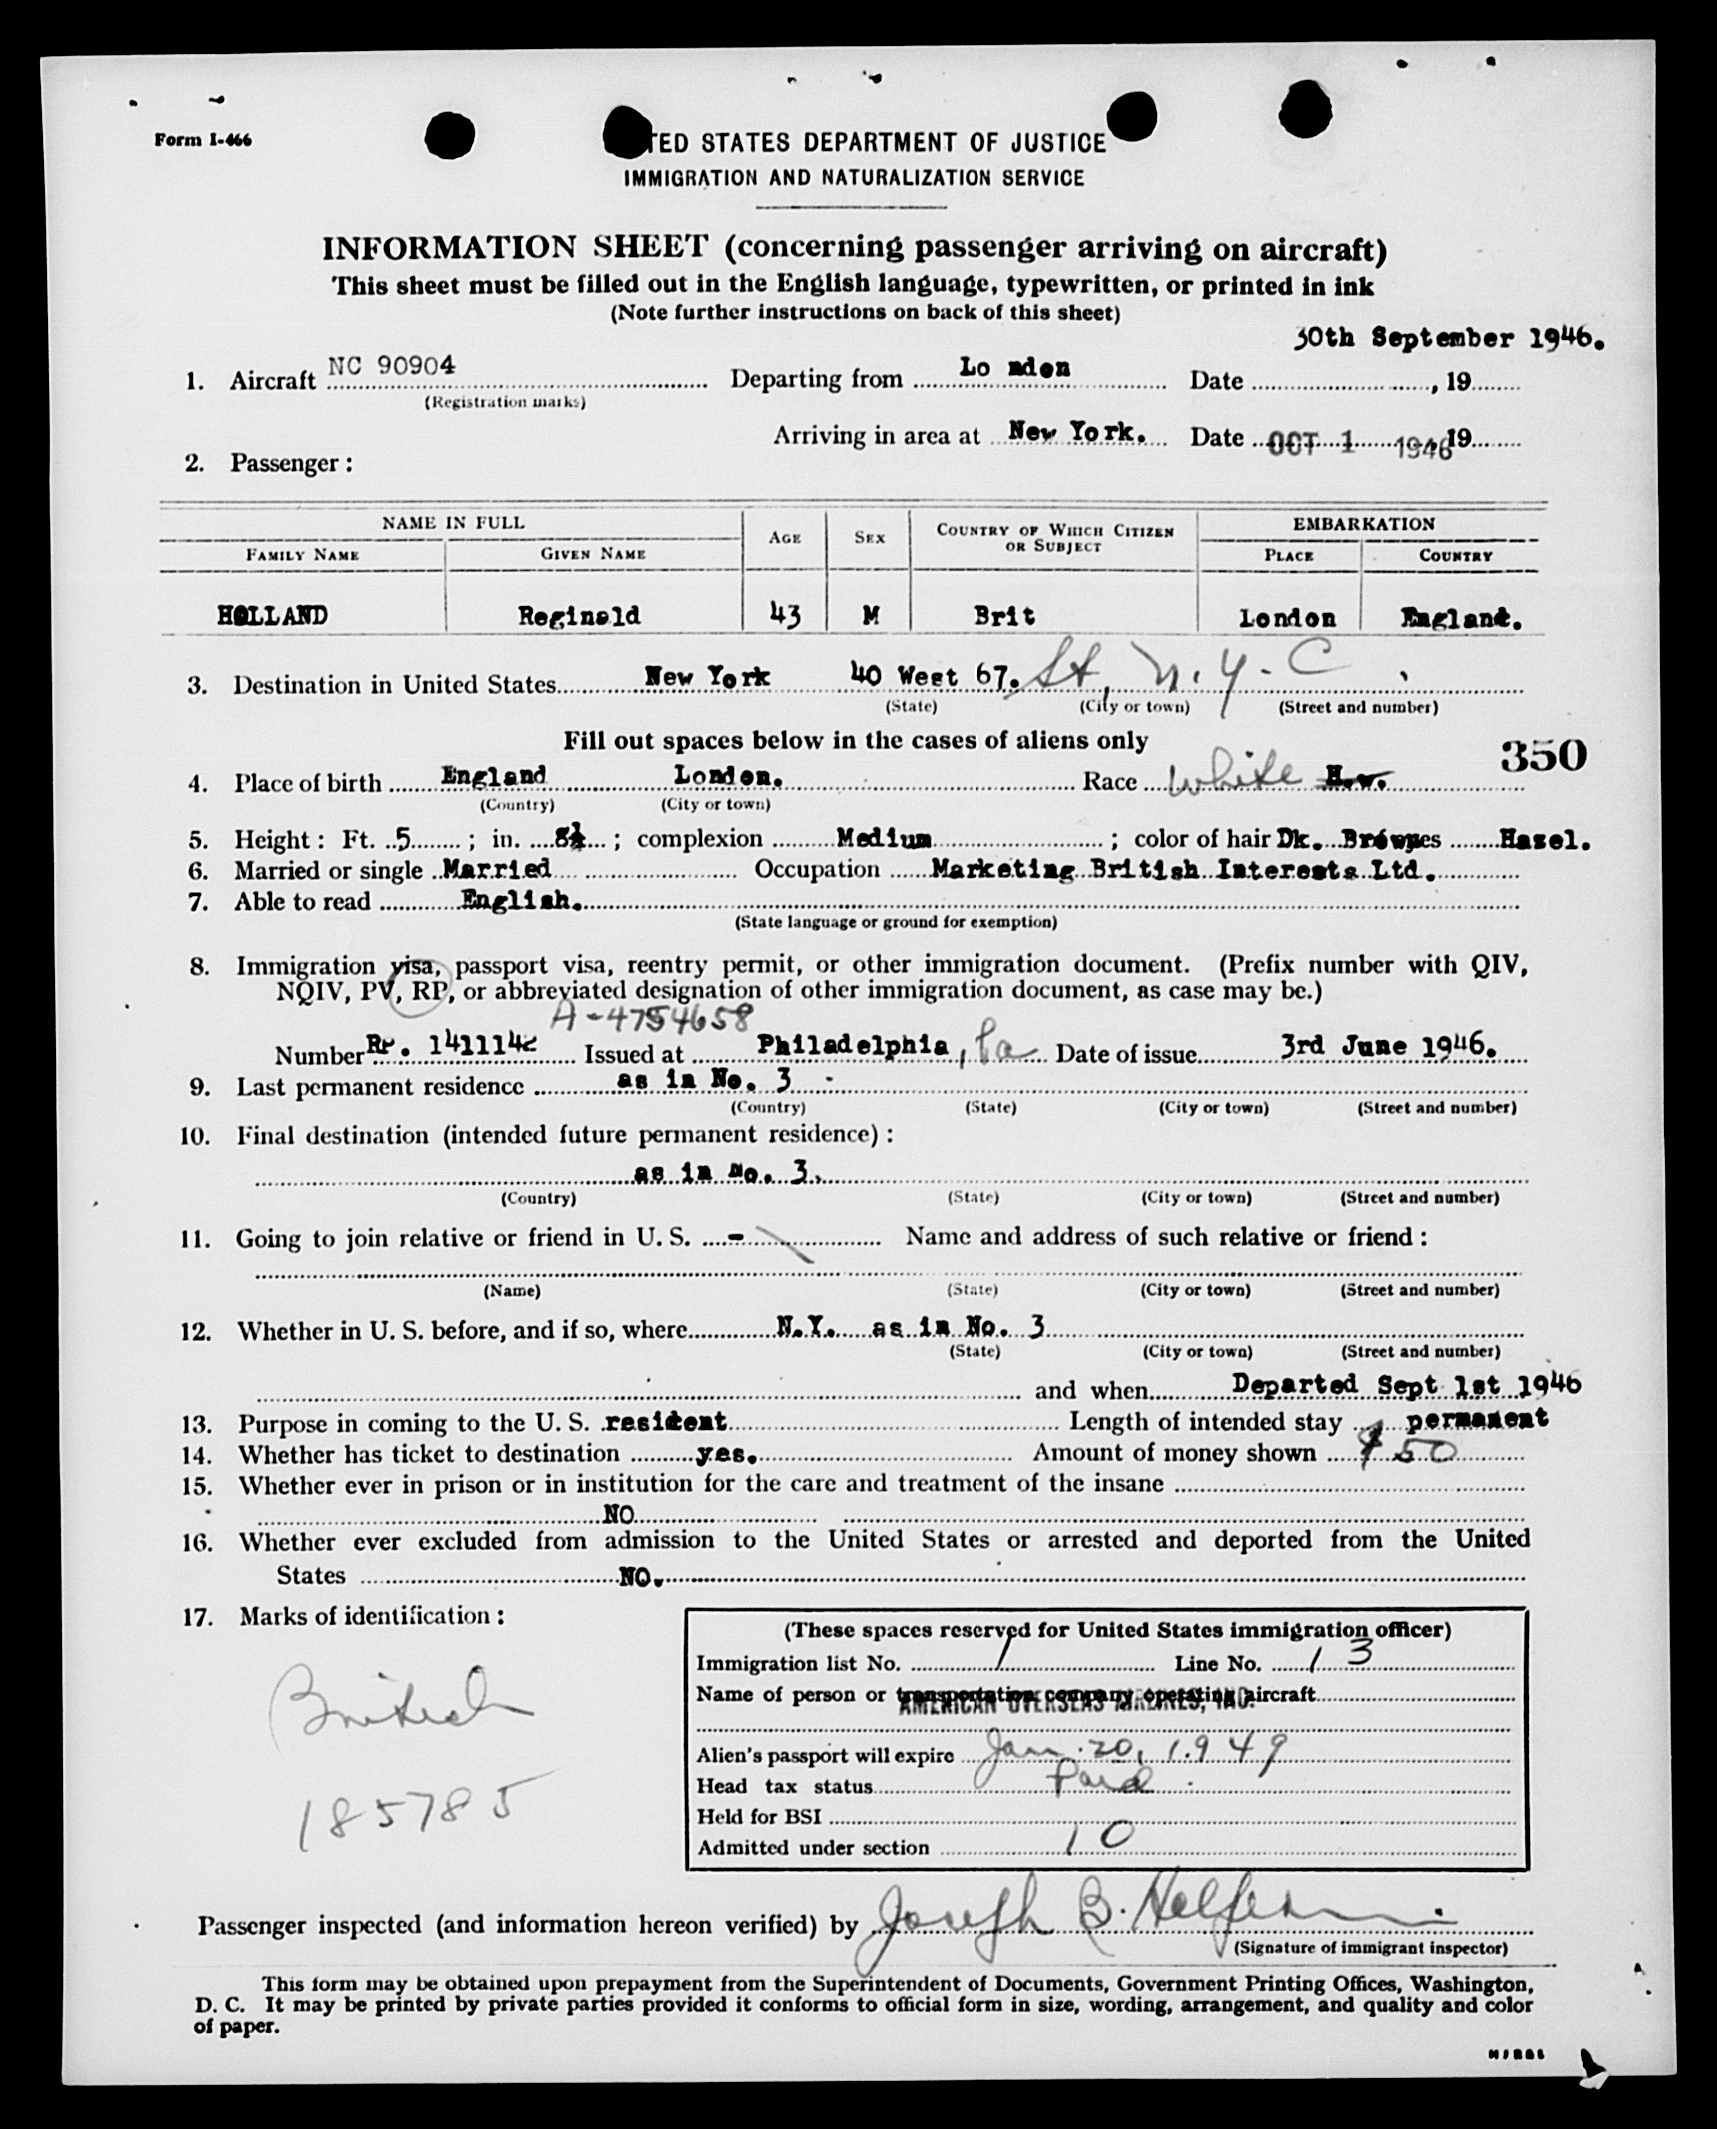 Form I-466
TED STATES DEPARTMENT OF JUSTICE
IMMIGRATION AND NATURALIZATION SERVICE
INFORMATION SHEET (concerning passenger arriving on aircraft)
This sheet must be filled out in the English language, typewritten, or printed in ink
(Note further instructions on back of this sheet)
30th September 1946.
1. Aircraft NC 90904 Departing from Lo ndon Date , 19
(Registration marks)
Arriving in area at New York. Date OCT 1 1946 , 19
2. Passenger :
NAME IN FULL AGE SEX COUNTRY OF WHICH CITIZEN OR SUBJECT EMBARKATION
FAMILY NAME GIVEN NAME PLACE COUNTRY
HOLLAND Reginald 43 M Brit London England.
3. Destination in United States New York 40 West 67. St, N.Y.C
(State) (City or town) (Street and number)
Fill out spaces below in the cases of aliens only
350
4. Place of birth England London. Race White
(Country) (City or town)
5. Height : Ft. 5 ; in. 8½ ; complexion Medium ; color of hair Dk. Brown es Hazel.
6. Married or single Married Occupation Marketing British Interests Ltd.
7. Able to read English.
(State language or ground for exemption)
8. Immigration visa, passport visa, reentry permit, or other immigration document. (Prefix number with QIV,
NQIV, PV, RP, or abbreviated designation of other immigration document, as case may be.)
A-4754658
Number RP. 1411142 Issued at Philadelphia, Pa Date of issue 3rd June 1946.
9. Last permanent residence as in No. 3
(Country) (State) (City or town) (Street and number)
10. Final destination (intended future permanent residence) :
as in No. 3.
(Country) (State) (City or town) (Street and number)
11. Going to join relative or friend in U. S. - Name and address of such relative or friend :
(Name) (State) (City or town) (Street and number)
12. Whether in U. S. before, and if so, where N.Y. as in No. 3
(State) (City or town) (Street and number)
and when Departed Sept 1st 1946
13. Purpose in coming to the U. S. resident Length of intended stay permanent
14. Whether has ticket to destination yes. Amount of money shown $ 50
15. Whether ever in prison or in institution for the care and treatment of the insane
NO
16. Whether ever excluded from admission to the United States or arrested and deported from the United
States NO.
17. Marks of identification :
British
185785
(These spaces reserved for United States immigration officer)
Immigration list No. 1 Line No. 13
Name of person or transportation company operating aircraft
AMERICAN OVERSEAS AIRLINES, INC.
Alien's passport will expire Jan. 20, 1949
Head tax status Paid
Held for BSI
Admitted under section 10
Passenger inspected (and information hereon verified) by Joseph B.
(Signature of immigrant inspector)
This form may be obtained upon prepayment from the Superintendent of Documents, Government Printing Offices, Washington,
D. C. It may be printed by private parties provided it conforms to official form in size, wording, arrangement, and quality and color
of paper.